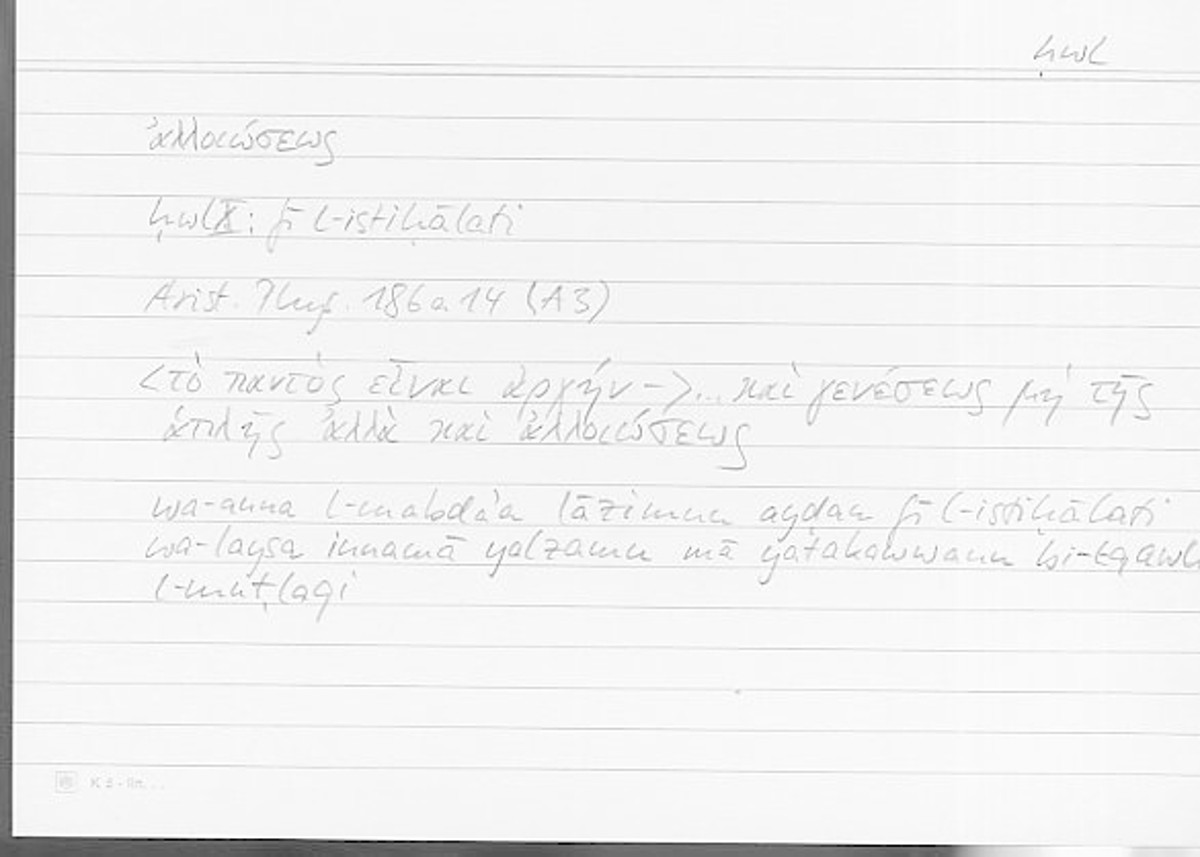 ḥwl
ἀλλοιώσεως
ḥwl X: fī l-istiḥālati
Arist. Phys. 186a14 (A3)
<τὸ παντὸς εἶναι ἀρχήν –>... καὶ γενέσεως μὴ τῆς
ἁπλῆς ἀλλὰ καὶ ἀλλοιώσεως
wa-anna l-mabda'a lāzimun ayḍan fī l-istiḥālati
wa-laysa innamā yalzamu mā yatakawwanu bi-
l-muṭlaqi